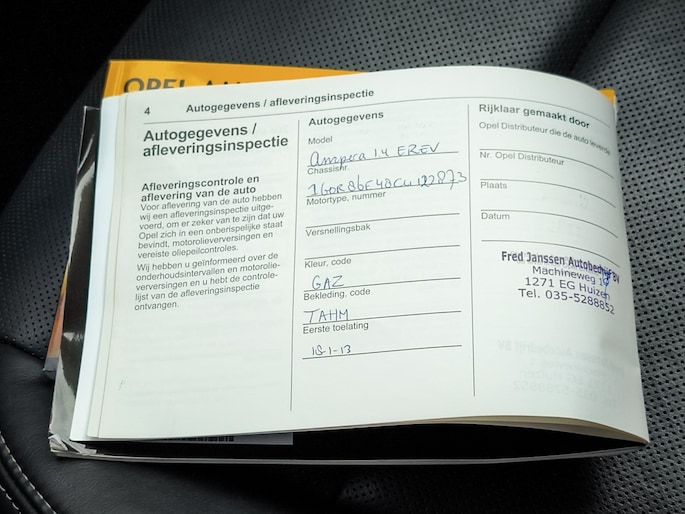 OPEL
4 Autogegevens / afleveringsinspectie
Autogegevens /
afleveringsinspectie
Afleveringscontrole en
aflevering van de auto
Voor aflevering van de auto hebben
wij een afleveringsinspectie uitge-
voerd, om er zeker van te zijn dat uw
Opel zich in een onberispelijke staat
bevindt, motorolieverversingen en
vereiste oliepeilcontroles.
Wij hebben u geïnformeerd over de
onderhoudsintervallen en motorolie-
verversingen en u hebt de controle-
lijst van de afleveringsinspectie
ontvangen.
Autogegevens
Model
Ampera 1.4 EREV
Chassisnr.
Motortype, nummer
Versnellingsbak
Kleur, code
GAZ
Bekleding, code
TAHM
Eerste toelating
18-1-13
Rijklaar gemaakt door
Opel Distributeur die de auto leverde
Nr. Opel Distributeur
Plaats
Datum
Fred Janssen Autobedrijf BV
Machineweg
1271 EG Huizen
Tel. 035-5288852